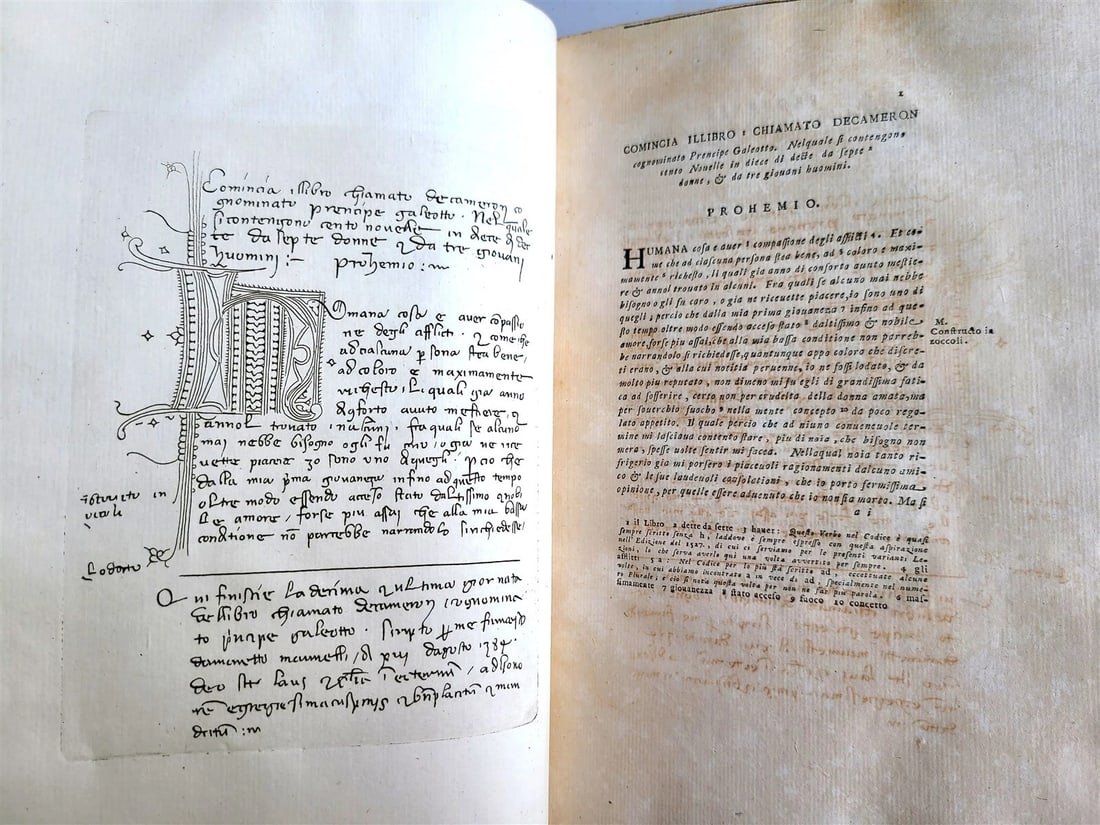 Comincia illibro chiamato decameron co
gnominato prencipe galeotto. Nel quale
si contengono cento novelle in diece di dec
te da septe donne & da tre giovani
huomini :~
Prohemio :~
Humana cosa e aver compassio
ne degli afflicti. & come che
ad ciascuna persona stea bene,
ad coloro e maximamente
richesto, li quali gia anno
di conforto avuto mestiere, &
annol trovato in alcuni. fra quali se alcuno
mai nebbe bisogno o gli fu caro, o gia ne rice
vette piacere io sono uno di quegli. percio che
dalla mia prima giovaneza infino ad questo tempo
oltre modo essendo acceso stato daltissimo & nobi
le amore, forse piu assai che alla mia bassa
conditione non parrebbe narrandolo si richiedesse,
in
Lodorto
Qui finiscie la decima & ultima giornata
del libro chiamato decameron cognomina
to principe galeotto. Scripto per me
damaretto mannelli, di xiii dagosto 1384
deo sit laus & in eternum, ad
COMINCIA ILLIBRO ¹ CHIAMATO DECAMERON
cognominato Prencipe Galeotto. Nelquale si contengono
cento Nouelle in diece di dette da septe ²
donne, & da tre giouani huomini.
PROHEMIO.
HUMANA cosa e auer ³ compassione degli afflitti 4. Et co-
me che ad ciascuna persona stea bene, ad ⁵ coloro e maxi-
mamente ⁶ richesto, li quali gia anno di conforto auuto mestie-
re & annol trouato in alcuni. Fra quali se alcuno mai nebbe
bisogno o gli fu caro, o gia ne riceuette piacere, io sono uno di
quegli; percio che dalla mia prima giouaneza 7 infino ad que-
sto tempo oltre modo essendo acceso stato ⁸ daltissimo & nobile
amore, forse piu assai, che alla mia bassa conditione non parreb-
be narrandolo si richiedesse, quantunque appo coloro che discre-
ti erano, & alla cui notitia peruenne, io ne fossi lodato, & da
molto piu reputato, non dimeno mi fu egli di grandissima fati-
ca ad sofferire, certo non per crudelta della donna amata, ma
per souerchio fuocho ⁹ nella mente concepto ¹⁰ da poco rego-
lato appetito. Il quale percio che ad niuno conueneuole ter-
mine mi lasciaua contento stare, piu di noia, che bisogno non
mera, spesse uolte sentir mi facea. Nellaqual noia tanto ri-
frigerio gia mi porsero i piaceuoli ragionamenti dalcuno ami-
co & le sue laudeuoli consolationi, che io porto fermissima
opinione, per quelle essere aduenuto che io non sia morto. Ma si
a i
M.
Constructo in
zoccoli.
1 il Libro 2 dette da sette 3 hauer: Questo Verbo nel Codice è quasi
sempre scritto senza h, laddove è sempre espresso con questa aspirazione
nell'Edizione del 1527. di cui ci serviamo per le presenti varianti Le-
zioni, lo che serva averlo qui una volta avvertito per sempre. 4 gli
afflitti 5 a: Nel Codice per lo più sta scritto ad, eccettuate alcune
volte, in cui abbiamo incontrato a in vece di ad, specialmente nel nume-
ro Plurale; e ciò si nota questa volta per non ne far più parola. 6 mas-
simamente 7 giovanezza 8 stato acceso 9 fuoco 10 concetto